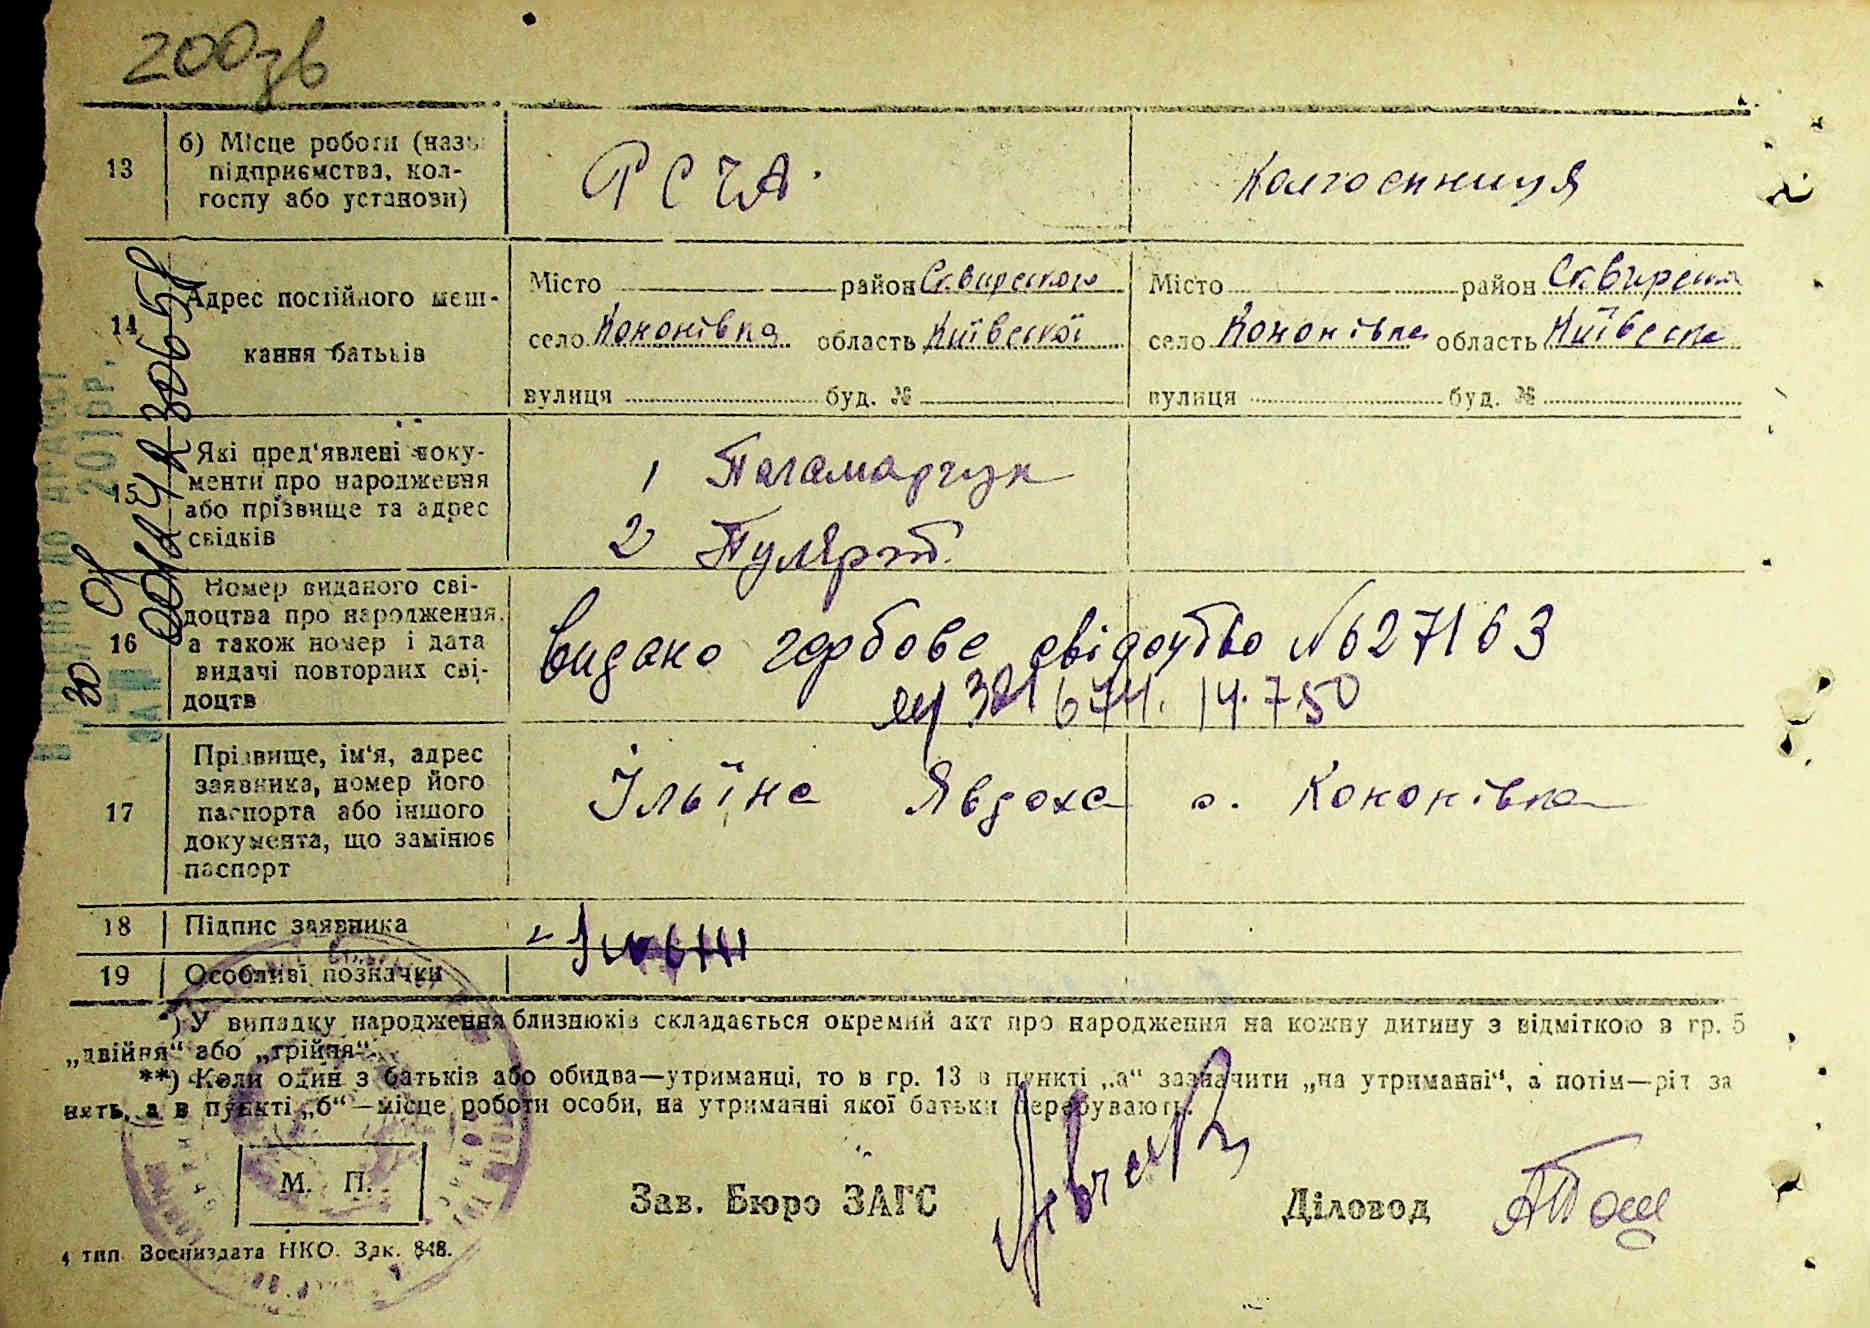 200зв
13
б) Місце роботи (назв
підприємства, кол-
госпу або установи)
РСЧА.
Колгоспниця
14
Адрес постійного меш-
кання батьків
Місто район Сквирського
село Кононівка область Київської
вулиця буд. №
Місто район Сквирськ
село Кононівка область Київська
вулиця буд. №
15
Які пред'явлені доку-
менти про народження
або прізвище та адрес
свідків
1 Паламарчук
2
16
Номер виданого сві-
доцтва про народження,
а також номер і дата
видачі повторних сві-
доцтв
Видано гербове свідоцтво №627163
321674. 14.7.50
17
Прізвище, ім'я, адрес
заявника, номер його
паспорта або іншого
документа, що замінює
паспорт
Ільїна Явдоха с. Кононівка
18 Підпис заявника
19 Особливі позначки
*) У випадку народження близнюків складається окремий акт про народження на кожну дитину з відміткою в гр. 5
„двійня“ або „трійня“.
**) Коли один з батьків або обидва—утриманці, то в гр. 13 в пункті „а“ зазначити „на утриманні“, а потім—рід за
нять, а в пункті „б“—місце роботи особи, на утриманні якої батьки перебувають.
М. П.
Зав. Бюро ЗАГС
Діловод
4 тип. Воениздата НКО. Зак. 848.